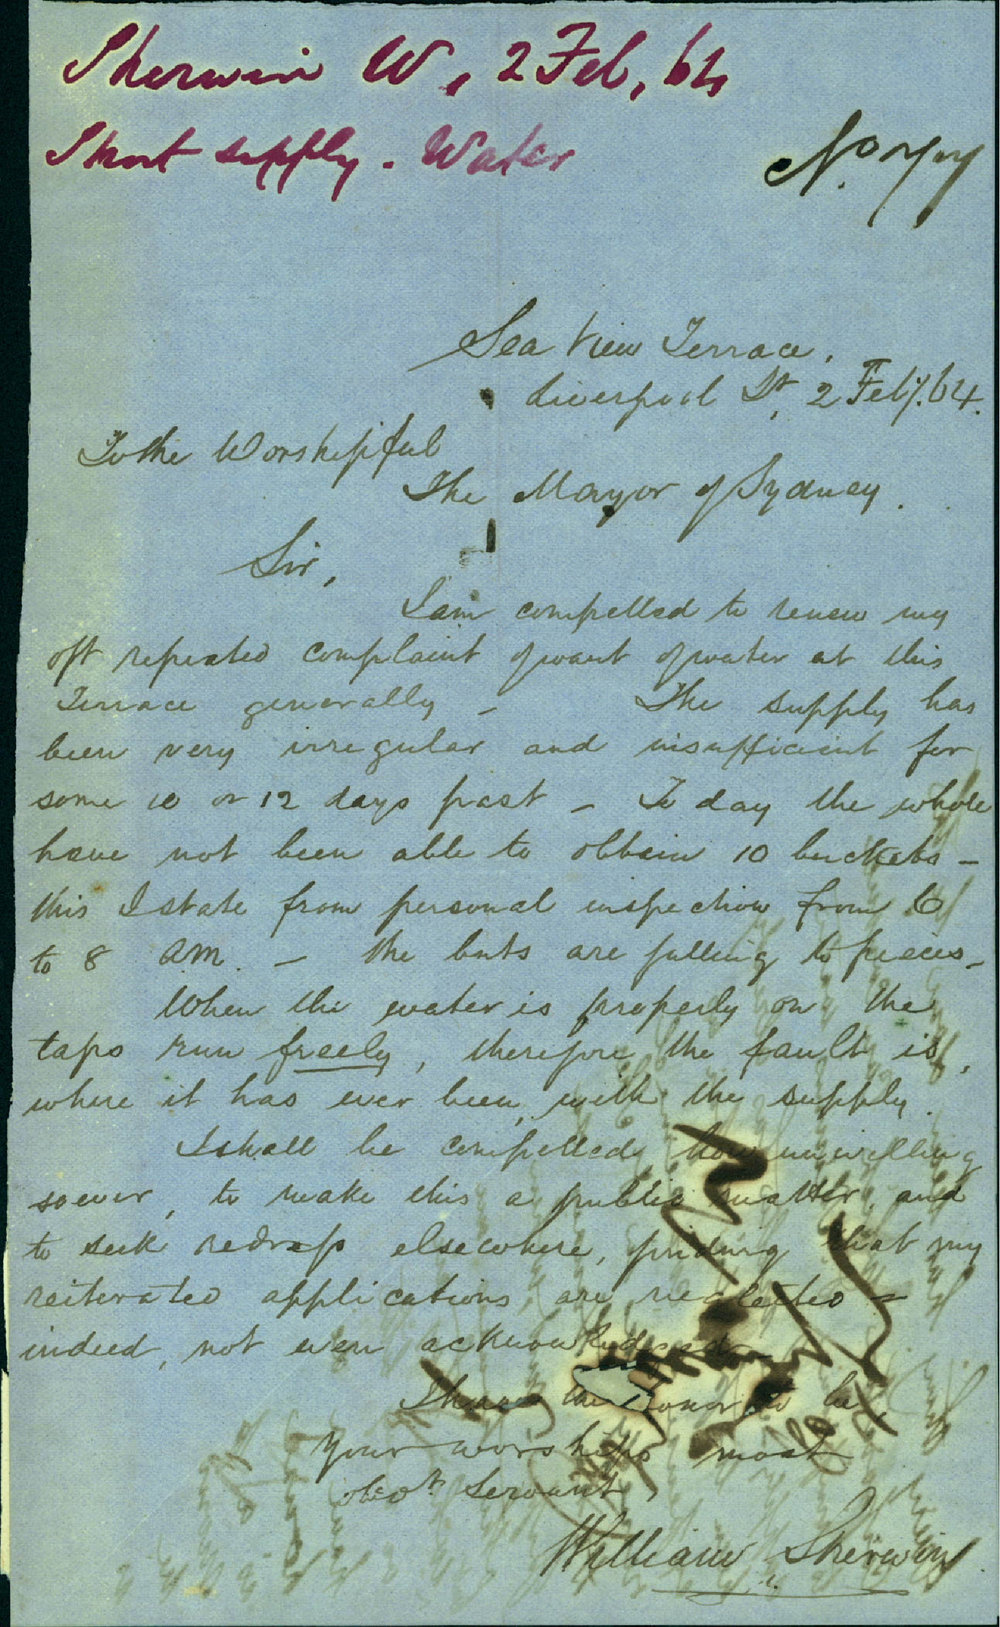 Sherwin W, 2 Feb, 64
Short supply. Water
No.
Sea View Terrace.
Liverpool St, 2 Feby. 64.
To the Worshipful
The Mayor of Sydney.
Sir,
I am compelled to renew my
oft repeated complaint of want of water at this
Terrace generally - The supply has
been very irregular and insufficient for
some 10 or 12 days past - To day the whole
have not been able to obtain 10 buckets -
this I state from personal inspection from 6
to 8 AM. - the buts are falling to pieces -
When the water is properly on the
taps run freely, therefore, the fault is,
where it has ever been, with the supply.
I shall be compelled, how unwilling
soever, to make this a public matter, and
to seek redress elsewhere, finding that my
reiterated applications are neglected -
indeed, not even acknowledged -
I have the honor to be,
Your worships most
obedt. Servant
William Sherwin